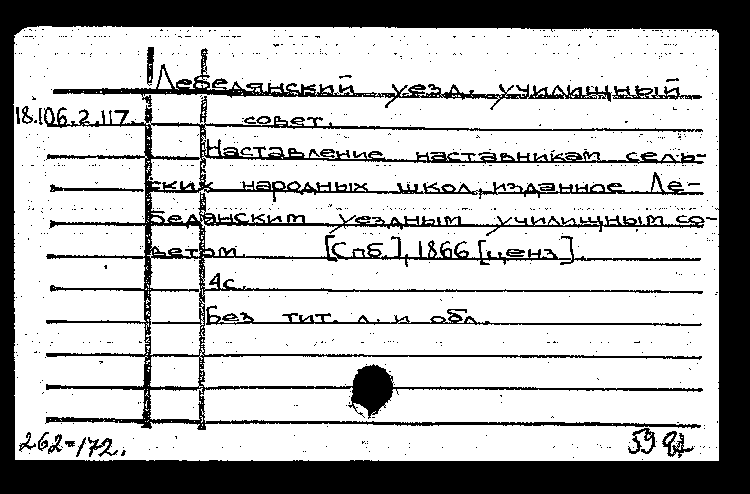 Лебедянский уезд. училищный
18.106.2.117. совет.
Наставление наставникам сель-
ских народных школ, изданное Ле-
бедянским уездным училищным со-
ветом. [Спб.], 1866 [ценз].
4с.
Без тит. л. и обл.
262-172.